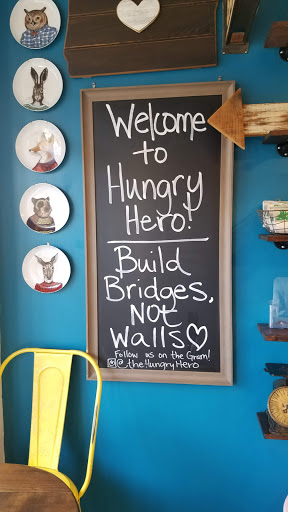 Welcome
to
Hungry
Hero!
Build
Bridges,
Not
Walls♡
Follow us on the Gram!
@theHungryHero